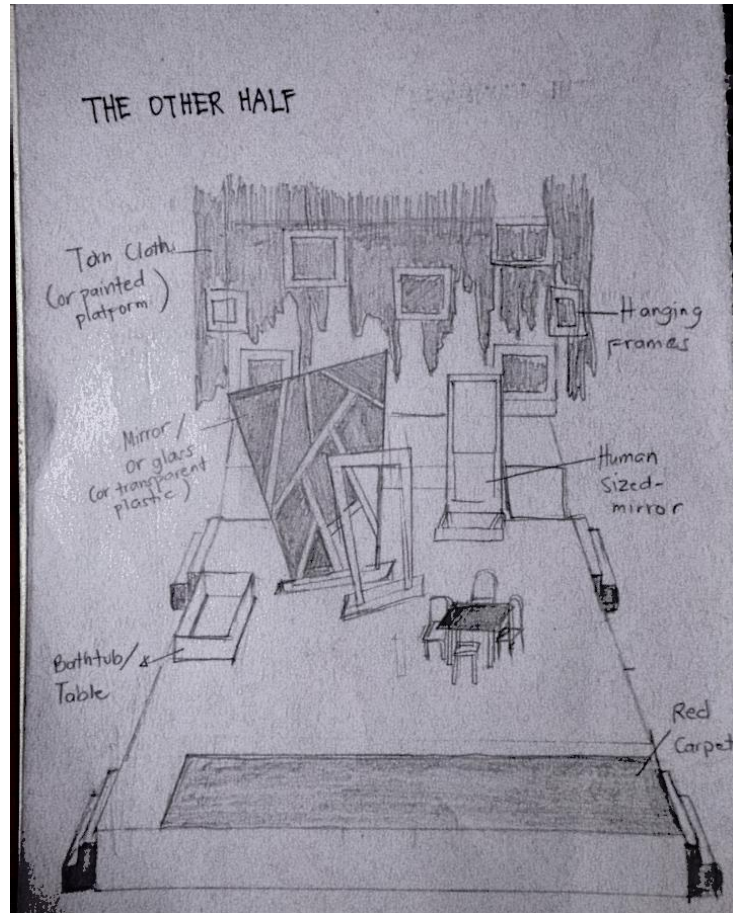 THE OTHER HALF
Torn Cloth
(or painted
platform)
Hanging
frames
Mirror/
or glass
(or transparent
plastic)
Human
Sized-
mirror
Bathtub/
Table
Red
Carpet